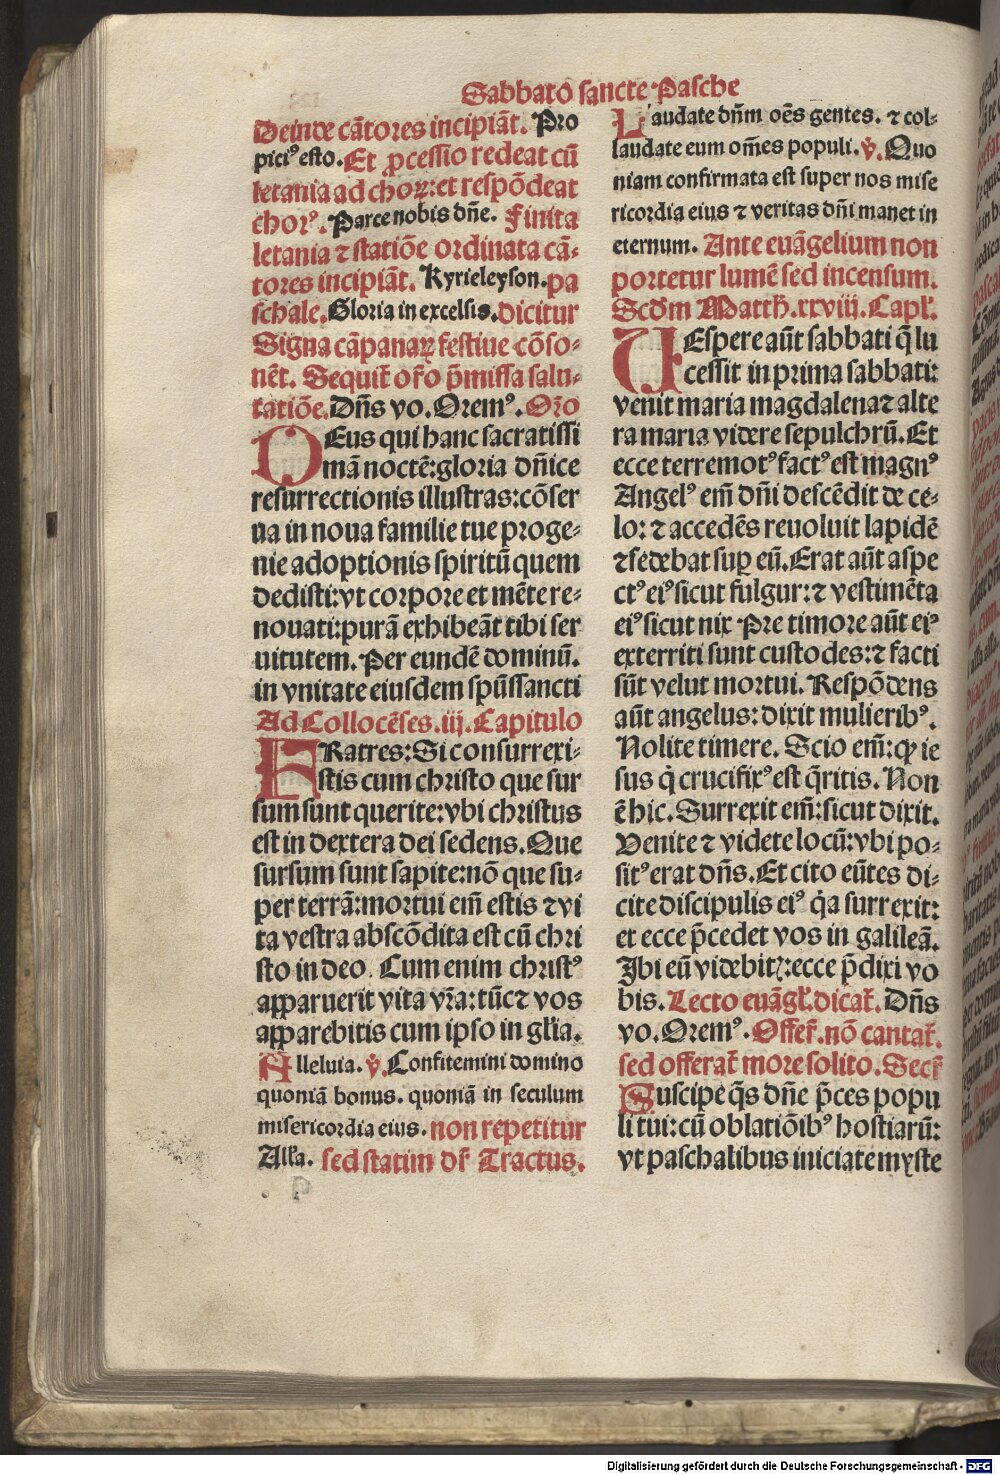 Sabbato sancte Pasche
Deinde cātores incipiāt. Pro
pici⁹ esto. Et ꝓcessio redeat cū
letania ad choꝝ: et respōdeat
chor⁹. Parce nobis dn̄e. Finita
letania ⁊ statiōe ordinata cā⸗
tores incipiāt. Kyrieleyson. pa
schale. Gloria in excelsis. dicitur
Signa cāpanaꝝ festiue cōso⸗
nēt. Sequit̄ or̄o p̄missa salu⸗
tatiōe. Dn̄s vo. Orem⁹. Oro
DEus qui hanc sacratissi
mā noctē: gloria dn̄ice
resurrectionis illustras: cōser
ua in noua familie tue proge⸗
nie adoptionis spiritū quem
dedisti: vt corpore et mēte re⸗
nouati: purā exhibeāt tibi ser
uitutem. Per eundē dominū.
in vnitate eiusdem spūssancti
Ad Collocēses. iij. Capitulo
FRatres: Si consurrexi⸗
stis cum christo que sur
sum sunt querite: vbi christus
est in dextera dei sedens. Que
sursum sunt sapite: nō que su⸗
per terrā: mortui em̄ estis ⁊ vi
ta vestra abscōdita est cū chri
sto in deo. Cum enim christ⁹
apparuerit vita vr̄a: tūc ⁊ vos
apparebitis cum ipso in gl̄ia.
Alleluia. ℣. Confitemini domino
quoniā bonus. quoniā in seculum
misericordia eius. non repetitur
Alla. sed statim dr̄ Tractus.
Laudate dn̄m oēs gentes. ⁊ col⸗
laudate eum om̄es populi. ℣. Quo
niam confirmata est super nos mise
ricordia eius ⁊ veritas dn̄i manet in
eternum. Ante euāgelium non
portetur lumē sed incensum.
Scdm Matth. xxviii. Capl̄.
VEspere aūt sabbati q̄ lu
cessit in prima sabbati:
venit maria magdalena ⁊ alte
ra maria videre sepulchrū. Et
ecce terremot⁹ fact⁹ est magn⁹
Angel⁹ em̄ dn̄i descēdit de ce⸗
lo: ⁊ accedēs reuoluit lapidē
⁊ sedebat suꝑ eū. Erat aūt aspe
ct⁹ ei⁹ sicut fulgur: ⁊ vestimēta
ei⁹ sicut nix Pre timore aūt ei⁹
exterriti sunt custodes: ⁊ facti
sūt velut mortui. Respōdens
aūt angelus: dixit mulierib⁹.
Nolite timere. Scio em̄: ꝙ ie
sus q̇ crucifix⁹ est q̄ritis. Non
ē hic. Surrexit em̄: sicut dixit.
Venite ⁊ videte locū: vbi po⸗
sit⁹ erat dn̄s. Et cito eūtes di⸗
cite discipulis ei⁹ q̇a surrexit:
et ecce p̄cedet vos in galileā.
Ibi eū videbitꝭ: ecce p̄dixi vo
bis. Lecto euāgl̄. dicat̄. Dn̄s
vo. Orem⁹. Offer̄. nō cantat̄.
sed offerat̄ more solito. Secr̄
Suscipe q̄s dn̄e p̄ces popu
li tui: cū oblatiōib⁹ hostiarū:
vt paschalibus iniciate myste
Digitalisierung gefördert durch die Deutsche Forschungsgemeinschaft - DFG